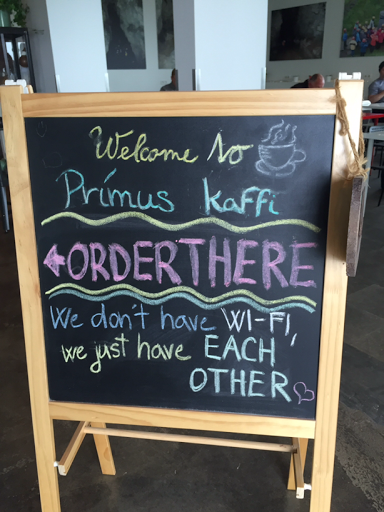 Welcome to
Prímus kaffi
ORDER THERE
We don't have WI-FI,
we just have EACH
OTHER